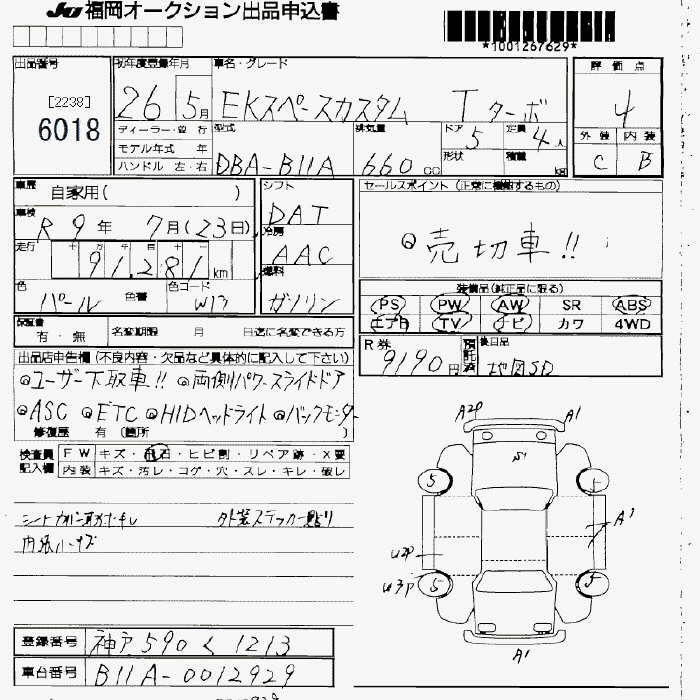 JU 福岡オークション出品申込書
*1001267629*
出品番号 初年度登録年月 車名・グレード 評価点
[2238]
6018
26 5月 EKスペースカスタム Tターボ 4
ディーラー・並行 型式 排気量 ドア 5 定員 4人 外装 内装
モデル年式 年 形状 積量 kg
ハンドル 左・右 DBA-B11A 660 cc C B
車歴 自家用( ) シフト DAT セールスポイント (正常に機能するもの)
車検 R9年 7月(23日) 冷房 AAC 売切車!!
走行 十 万 千 百 十 一
91,281 km 燃料 ガソリン
色 パール 色番 色コード W13
装備品(純正品に限る)
PS PW AW SR ABS
エアB TV ナビ カワ 4WD
保証書 有・無 名変期限 月 日迄に名変できる方
R券 9190円 預託済 後日品 地図SD
出品店申告欄 (不良内容・欠品など具体的に記入して下さい)
ユーザー下取車!! 両側パワースライドドア
ASC ETC HIDヘッドライト バックモニター
修復歴 有 (箇所 )
検査員記入欄 FW キズ・飛石・ヒビ割・リペア跡・X要
内装 キズ・汚レ・コゲ・穴・スレ・キレ・破レ
外装ステッカー貼り
A2P A1
S1
5 5
A1
U2P
U3P 5 5
A1
登録番号 神戸 590 く 1213
車台番号 B11A-0012929